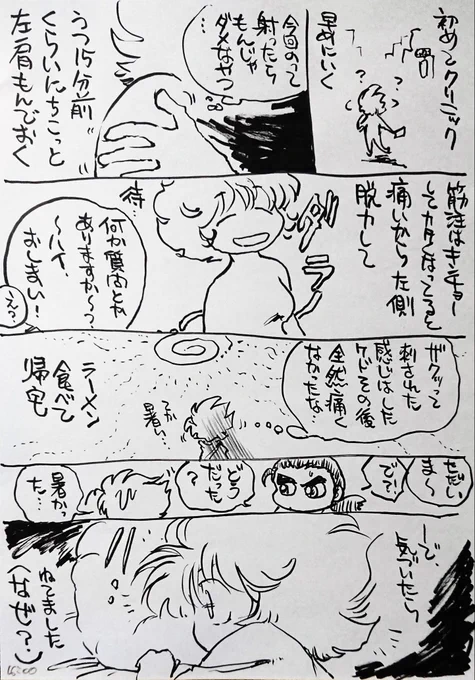 初めてクリニック
早めにいく
？
？
今回のって
射ったら
もんじゃ
ダメなやつ
…
うつ15分前
くらいにちょこっと
左肩もんでおく
筋注はキンチョー
してカタくなってると
痛いから左側
脱力して
ダラ
待…
何か質問とか
ありますか〜っ？
〜ハイ、
おしまい！
え？
ザクッって
刺された
感じはした
ケドその後
全然痛く
なかったな
てか
暑い…
ラーメン
食べて
帰宅
ただい
ま〜
で？
どう
だった
？
暑かっ
た…
ーで、
気づいたら
ねてました
（なぜ？）
16:00